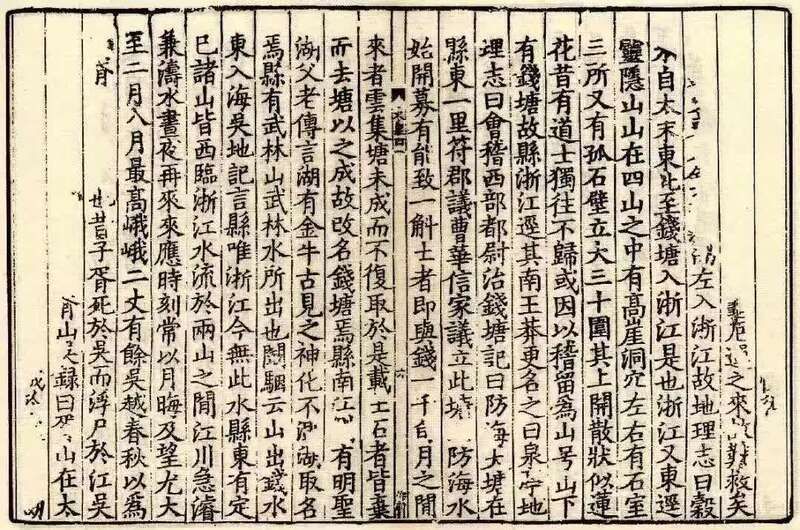 之來難救矣
左入浙江故地理志曰穀
水自太末東北至錢塘入浙江是也浙江又東逕
靈隱山山在四山之中有高崖洞穴左右有石室
三所又有孤石壁立大三十圍其上開散狀似蓮
花昔有道士獨往不歸或因以稽留爲山号山下
有錢塘故縣浙江逕其南王莽更名之曰泉亭地
理志曰會稽西部都尉治錢塘記曰防海大塘在
縣東一里符郡議曹華信家議立此塘 防海水
始開募有能致一斛士者即與錢一千 月之間
六
來者雲集塘未成而不復取於是載土石者皆棄
而去塘以之成故改名錢塘焉縣南江 有明聖
湖父老傳言湖有金牛古見之神化不 湖取名
焉縣有武林山武林水所出也闞駰云山出錢水
東入海吳地記言縣唯浙江今無此水縣東有定
巳諸山皆西臨浙江水流於兩山之間江川急濬
兼濤水晝夜再來來應時刻常以月晦及望尤大
至二月八月最高峨峨二丈有餘吳越春秋以爲
胥 也昔子胥死於吳而浮尸於江吳
胥山 錄曰 山在太